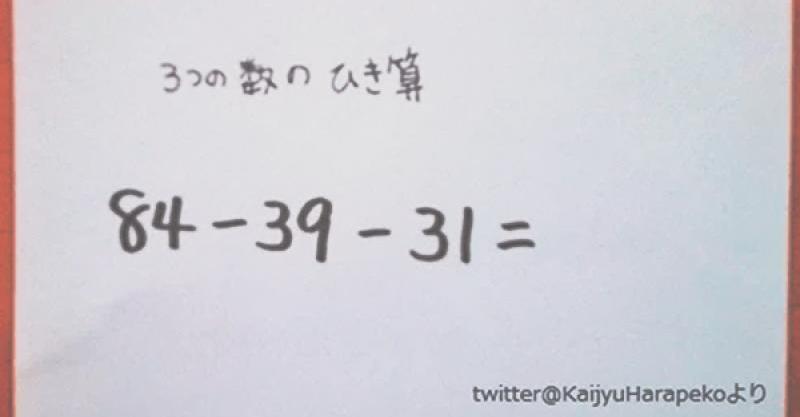 3つの数のひき算
84-39-31=
twitter@KaijyuHarapekoより